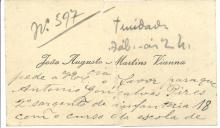 Nº 597
Trindade
João Augusto Martins Vianna
pede a V. Exª o favor para que
Antonio Gonçalves Pires
2º sargento de infantaria 18
com o curso da escola de